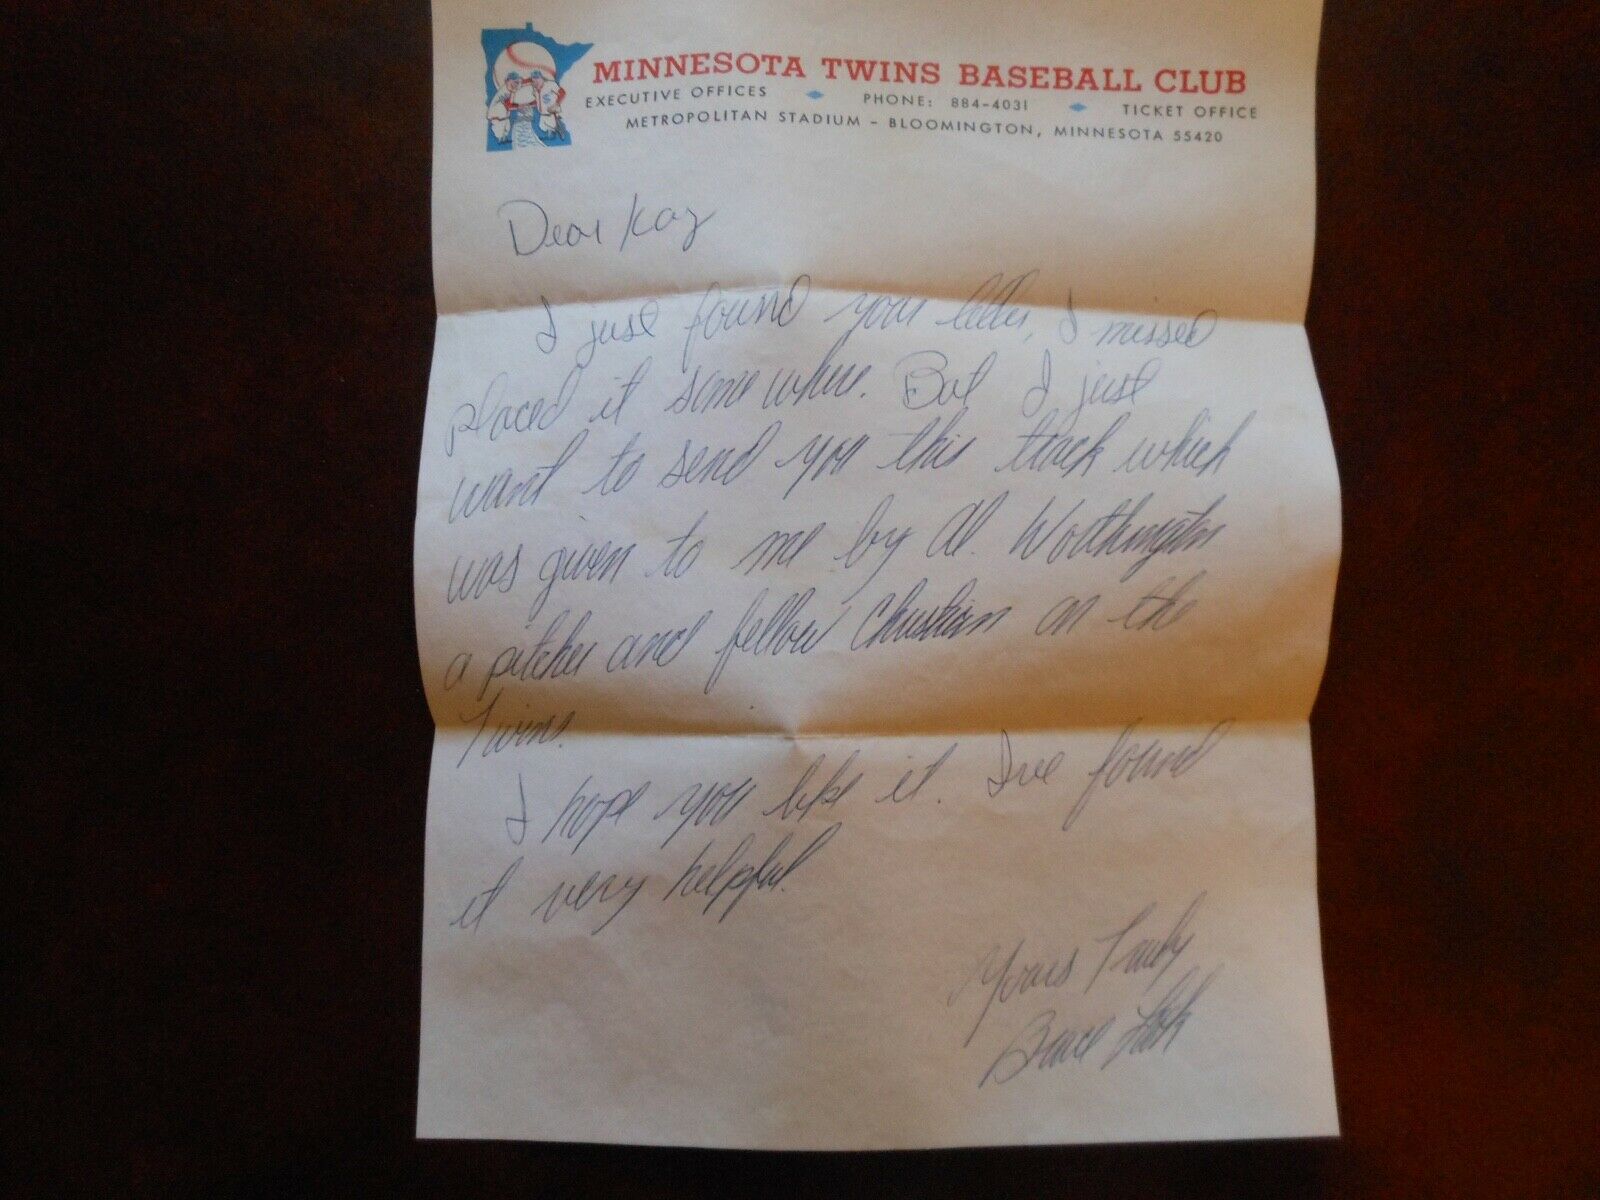 MINNESOTA TWINS BASEBALL CLUB
EXECUTIVE OFFICES PHONE: 884-4031 TICKET OFFICE
METROPOLITAN STADIUM - BLOOMINGTON, MINNESOTA 55420
Dear Kay
I just found your letter, I missed
placed it somewhere. But I just
want to send you this track which
was given to me by Al. Worthington
a pitcher and fellow Christian on the
Twins.
I hope you like it. I've found
it very helpful.
Yours Truly
Bruce Look